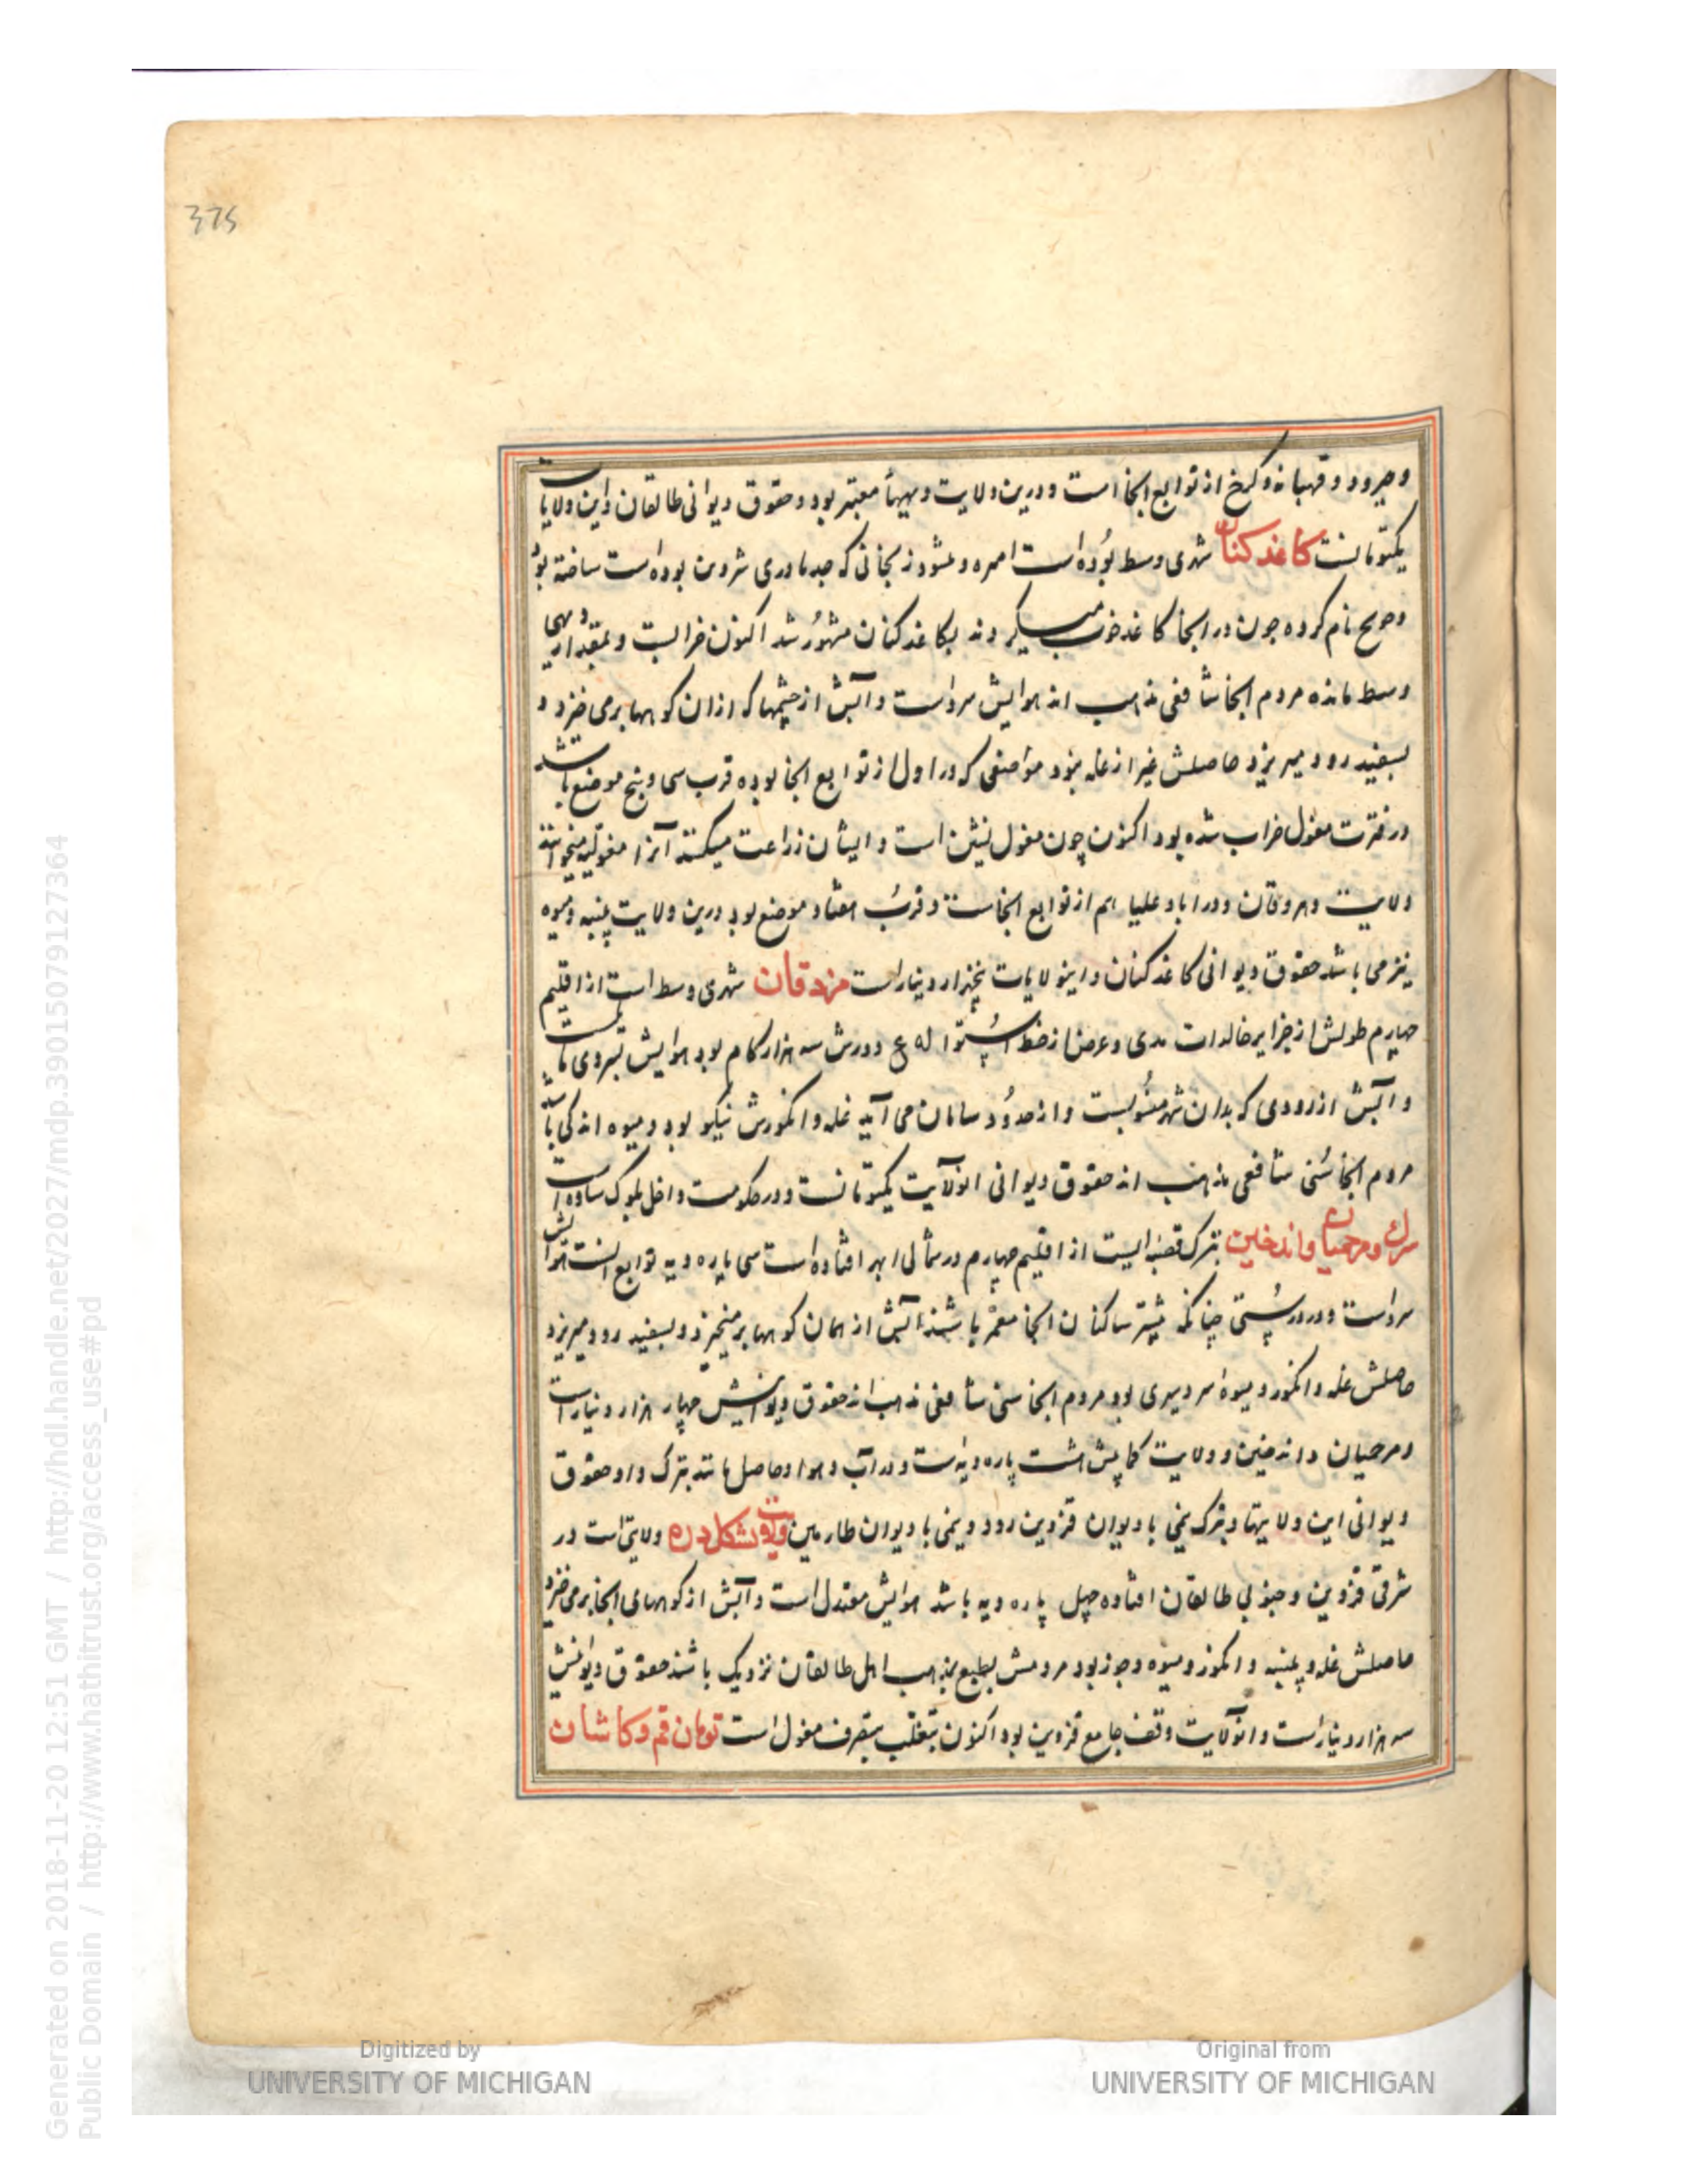 375
وجرود و قهپایه و کرخ از توابع انجا است و درین ولایت دیهها معتبر بود و حقوق دیوانی طالقان و این ولایات
یکتومانست کاغذکنان شهری وسط بوده است که جد مادری شروین بوده است ساخته بود
نام کرده چون در انجا کاغذ خوب میکردند بکاغذکنان مشهور شد اکنون خرابست و بمقدار دیهی
وسط مانده مردم انجا شافعی مذهب اند هوایش سرد است و آبش از چشمها که ازان کوهها برمی خیزد و
بسفید رود میریزد حاصلش غیر از غله نبود مواضعی که در اول از توابع انجا بوده قرب سی و پنج موضع باشد
در فترت مغول خراب شده بود اکنون چون مغول نشین است و ایشان زراعت میکنند آنرا مغولیه میخوانند
ولایت و دراباد علیا هم از توابع انجاست و قرب هفتاد موضع بود درین ولایت پنبه و میوه
نیز می باشد حقوق دیوانی کاغذکنان و اینولایات پنجهزار دینار است مزدقان شهری وسط است از اقلیم
چهارم طولش از جزایر خالدات و عرض از خط استوا له ع دورش سه هزار کام بود هوایش بسردی مایلست
و آبش از رودی که بدان شهر منسوبست و از حدود سامان می آید غله و انکورش نیکو بود و میوه اندکی باشد
مردم انجا سنی شافعی مذهب اند حقوق دیوانی انولایت یکتومانست و در حکومت داخل بلوک ساوه است
سرک و مرجمیان و اندخین بترک قصبه ایست از اقلیم چهارم در شمالی ابهر افتاده است سی پاره دیه توابع انست هوایش
سرد است و در درستی چنانکه بیشتر ساکنان انجا معمر باشند آبش از همان کوهها برمیخیزد و بسفید رود میریزد
حاصلش غله و انکور و میوه سردسیری بود مردم انجا سنی شافعی مذهب اند حقوق دیوانیش چهار هزار دینار است
و مرجمیان و اندخین و ولایت هشت پاره دیه است و در آب و هوا و حاصل مانند بترک و او حقوق
دیوانی این ولایتها و بترک نیمی با دیوان قزوین رود و نیمی با دیوان طارمین ولایت پشکل دره ولایتی است در
شرقی قزوین و جنوبی طالقان افتاده چهل پاره دیه باشد هوایش معتدل است و آبش از کوههای انجا برمی خیزد
حاصلش غله و پنبه و انکور و میوه و جوز بود مردمش بطبع بمذهب اهل طالقان نزدیک باشند حقوق دیوانیش
سه هزار دینار است و انولایت وقف جامع قزوین بود اکنون بتغلب بتصرف مغول است تومان قم و کاشان
Digitized by
UNIVERSITY OF MICHIGAN
Original from
UNIVERSITY OF MICHIGAN
Generated on 2018-11-20 12:51 GMT / http://hdl.handle.net/2027/mdp.39015079127364
Public Domain / http://www.hathitrust.org/access_use#pd